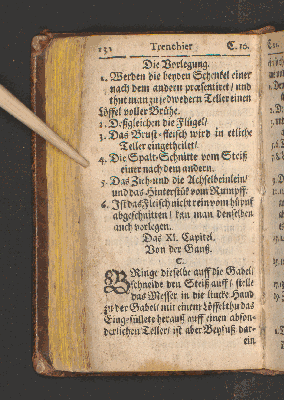 132 Trenchier C. 10.
Die Vorlegung.
1. Werden die beyden Schenkel einer
nach dem andern præsentiret / und
thut man zu jedwedern Teller einen
Löffel voller Brühe.
2. Desgleichen die Flügel /
3. Das Brust-fleisch wird in etliche
Teller eingetheilet /
4. Die Spalt-Schnitte vom Steiß
einer nach dem andern.
5. Das Zieh- und die Achselbeinlein /
und das Hinterstük vom Rumpff.
6. Ist das Fleisch nicht rein vom
abgeschnitten / kan man denselben
auch vorlegen.
Das XI. Capitel.
Von der Ganß.
C.
BRinge dieselbe auff die Gabel /
schneide den Steiß auff / stelle
das Messer in die lincke Hand
zu der Gabel / mit einem Löffel thu das
Eingefüllete herauß auff einen abson-
derlichen Teller / ist aber Beyfuß dar-
ein